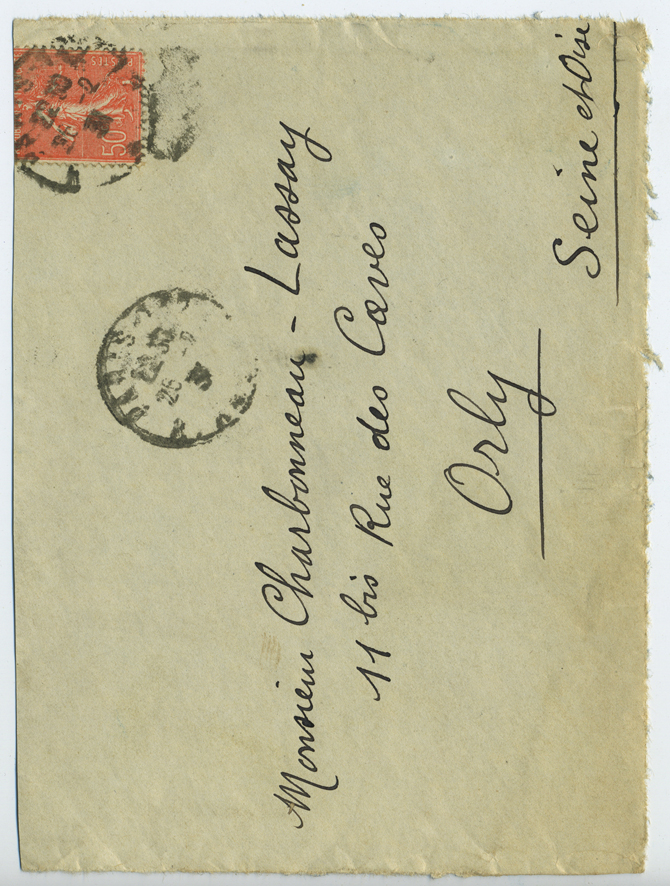 POSTES
50
PARIS
26 -2
Monsieur Charbonneau-Lassay
11 bis Rue des Caves
Orly
Seine et Oise